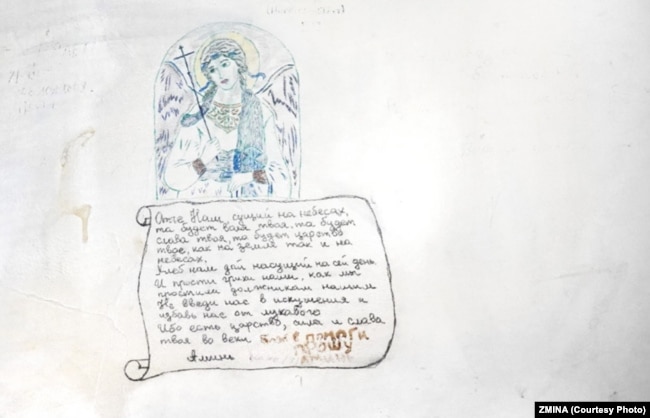 Отче Наш, сущий на небесах,
та будет воля твоя, та будет
слава твоя, та будет царство
твое, как на земле так и на
небесах.
Хлеб нам дай насущий на сей день
И прости грихи наши, как мы
простили должникам нашим
Не введи нас в искушения и
избавь нас от лукавого
Ибо есть царство, сила и слава
твоя во веки
помоги
прошу
Аминь
ZMINA (Courtesy Photo)